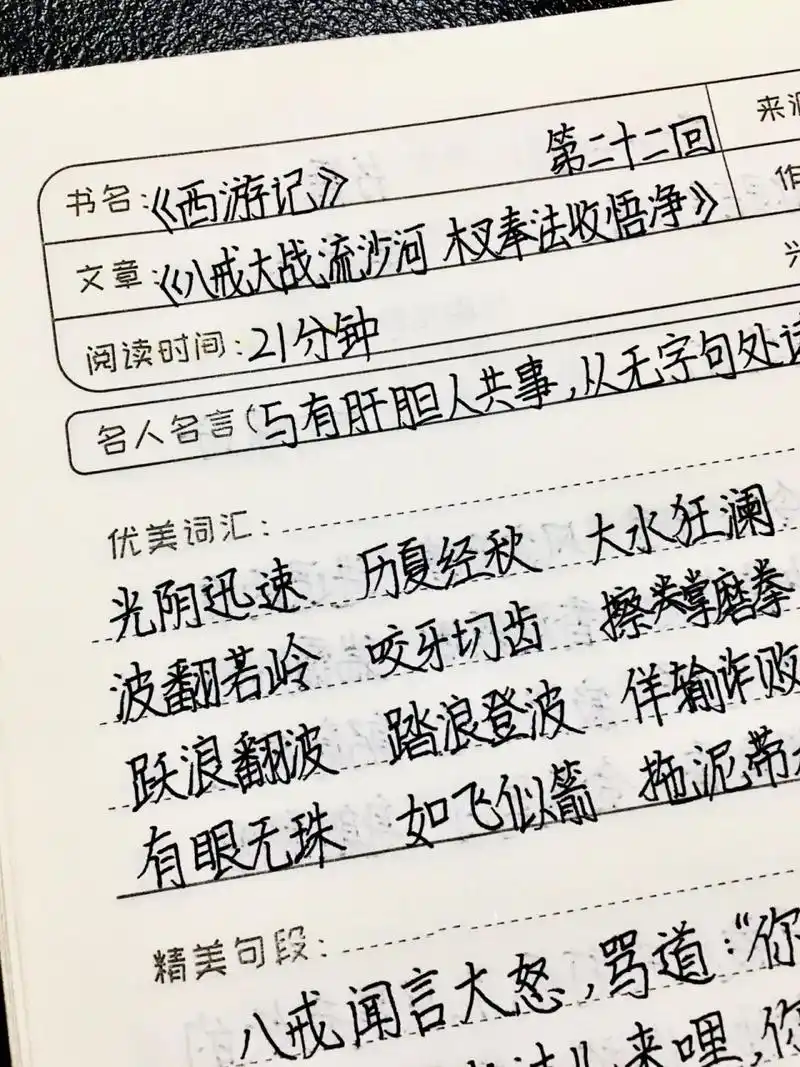 来源
书名：《西游记》 第二十二回
作
文章：《八戒大战流沙河 木叉奉法收悟净》
兴
阅读时间：21分钟
名人名言（与有肝胆人共事，从无字句处读
优美词汇：
光阴迅速 历夏经秋 大水狂澜
波翻若岭 咬牙切齿 擦掌磨拳
跃浪翻波 踏浪登波 佯输诈败
有眼无珠 如飞似箭 拖泥带
精美句段：
八戒闻言大怒，骂道：“你
来哩，你